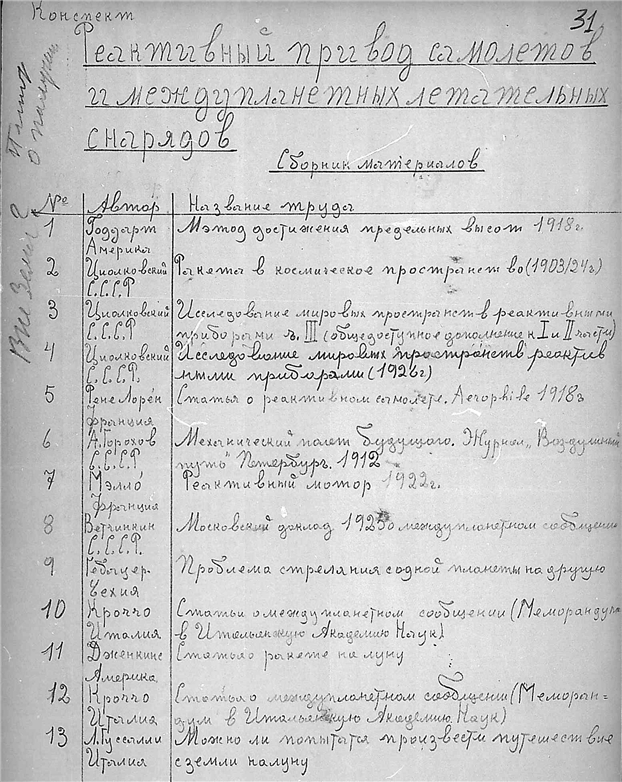 Конспект
31
Реактивный привод самолетов
и междупланетных летательных
снарядов
Сборник материалов
Вне Земли?
№ Автор Название труда
1 Годдарт Мэтод достижения предельных высот 1918г.
Америка
2 Циолковский Ракета в космическое пространство (1903/24г)
С.С.С.Р
3 Циолковский Исследование мировых пространств реактивными
С.С.С.Р приборами ч. III (общедоступное дополнение к I и II части)
4 Циолковский Исследование мировых пространств реактив
С.С.С.Р. ными приборами (1926г)
5 Рене Лорен Статья о реактивном самолете. Aerophile 1918г
Франция
6 А. Горохов Механический полет будущего. Журнал „Воздушный
С.С.С.Р. путь" Петербург. 1912
7 Мэлло Реактивный мотор 1922г.
Франция
8 Ветчинкин Московский доклад 1925 о междупланетном сообщении
С.С.С.Р.
9 Проблема стреляния с одной планеты на другую
Чехия
10 Кроччо Статьи о междупланетном сообщении (Меморандум
Италия в Итальянскую Академию Наук)
11 Дженкинс Статья о ракете на луну
Америка
12 Кроччо Статья о междупланетном сообщении (Меморан-
Италия дум в Итальянскую Академию Наук)
13 Л. Гуссалли Можно ли попытатся произвести путешествие
Италия с земли на луну